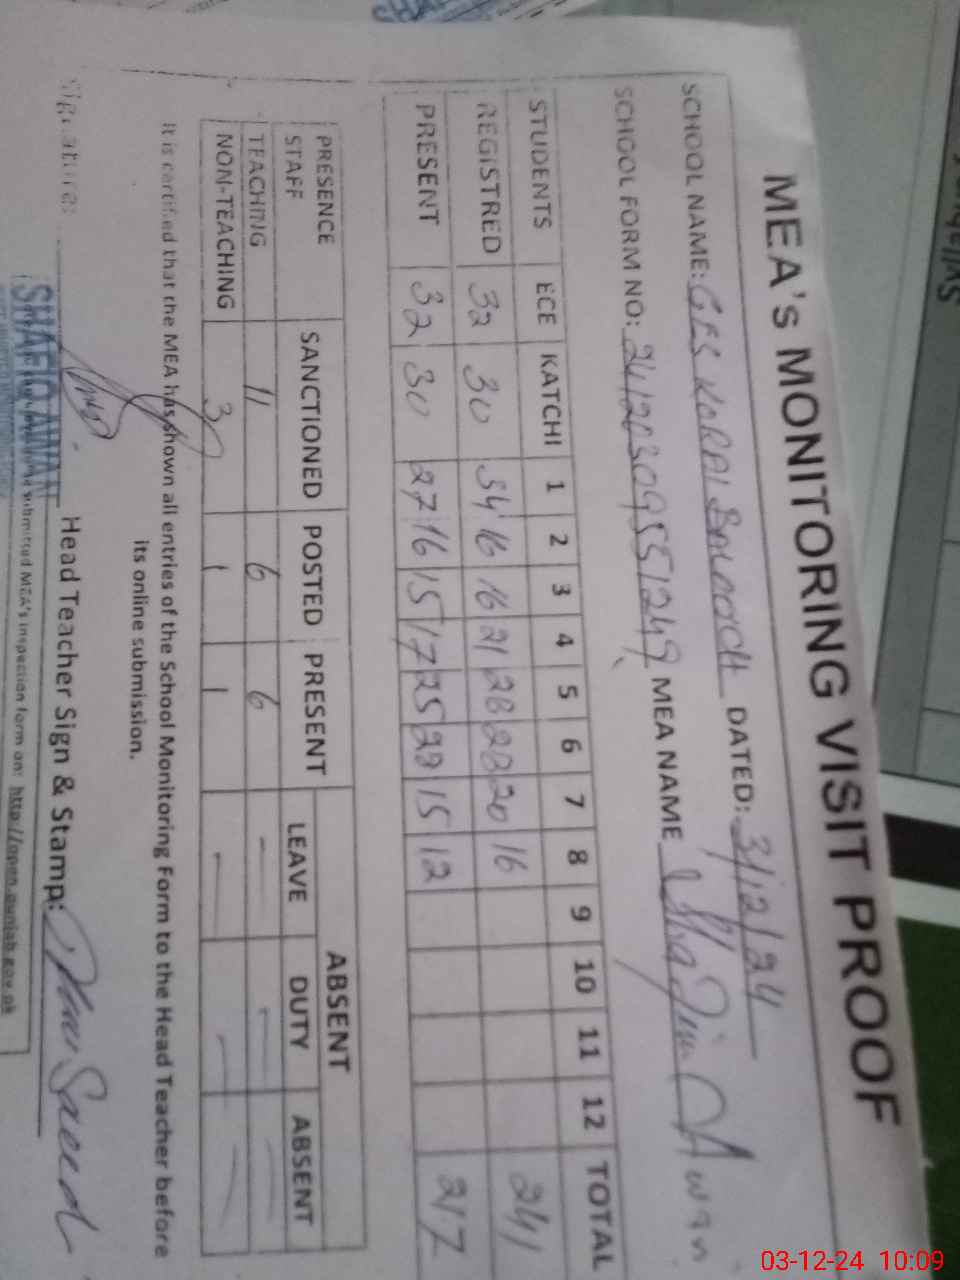 MEA's MONITORING VISIT PROOF
SCHOOL NAME: GES KORAI BALOCH DATED: 3/12/24
SCHOOL FORM NO: 24120309551249 MEA NAME Awan
STUDENTS ECE KATCHI 1 2 3 4 5 6 7 8 9 10 11 12 TOTAL
REGISTRED 32 30 34 16 16 21 28 28 20 16 241
PRESENT 32 30 27 16 15 17 25 28 15 12 217
PRESENCE STAFF SANCTIONED POSTED PRESENT ABSENT
LEAVE DUTY ABSENT
TEACHING 11 6 6 - - -
NON-TEACHING 3 1 1 - - -
It is certified that the MEA has shown all entries of the School Monitoring Form to the Head Teacher before
its online submission.
Signature: Head Teacher Sign & Stamp: Saeed
SHAFIQ AWAN
submitted MEA's inspection form on: http://open.punjab.gov.pk
03-12-24 10:09